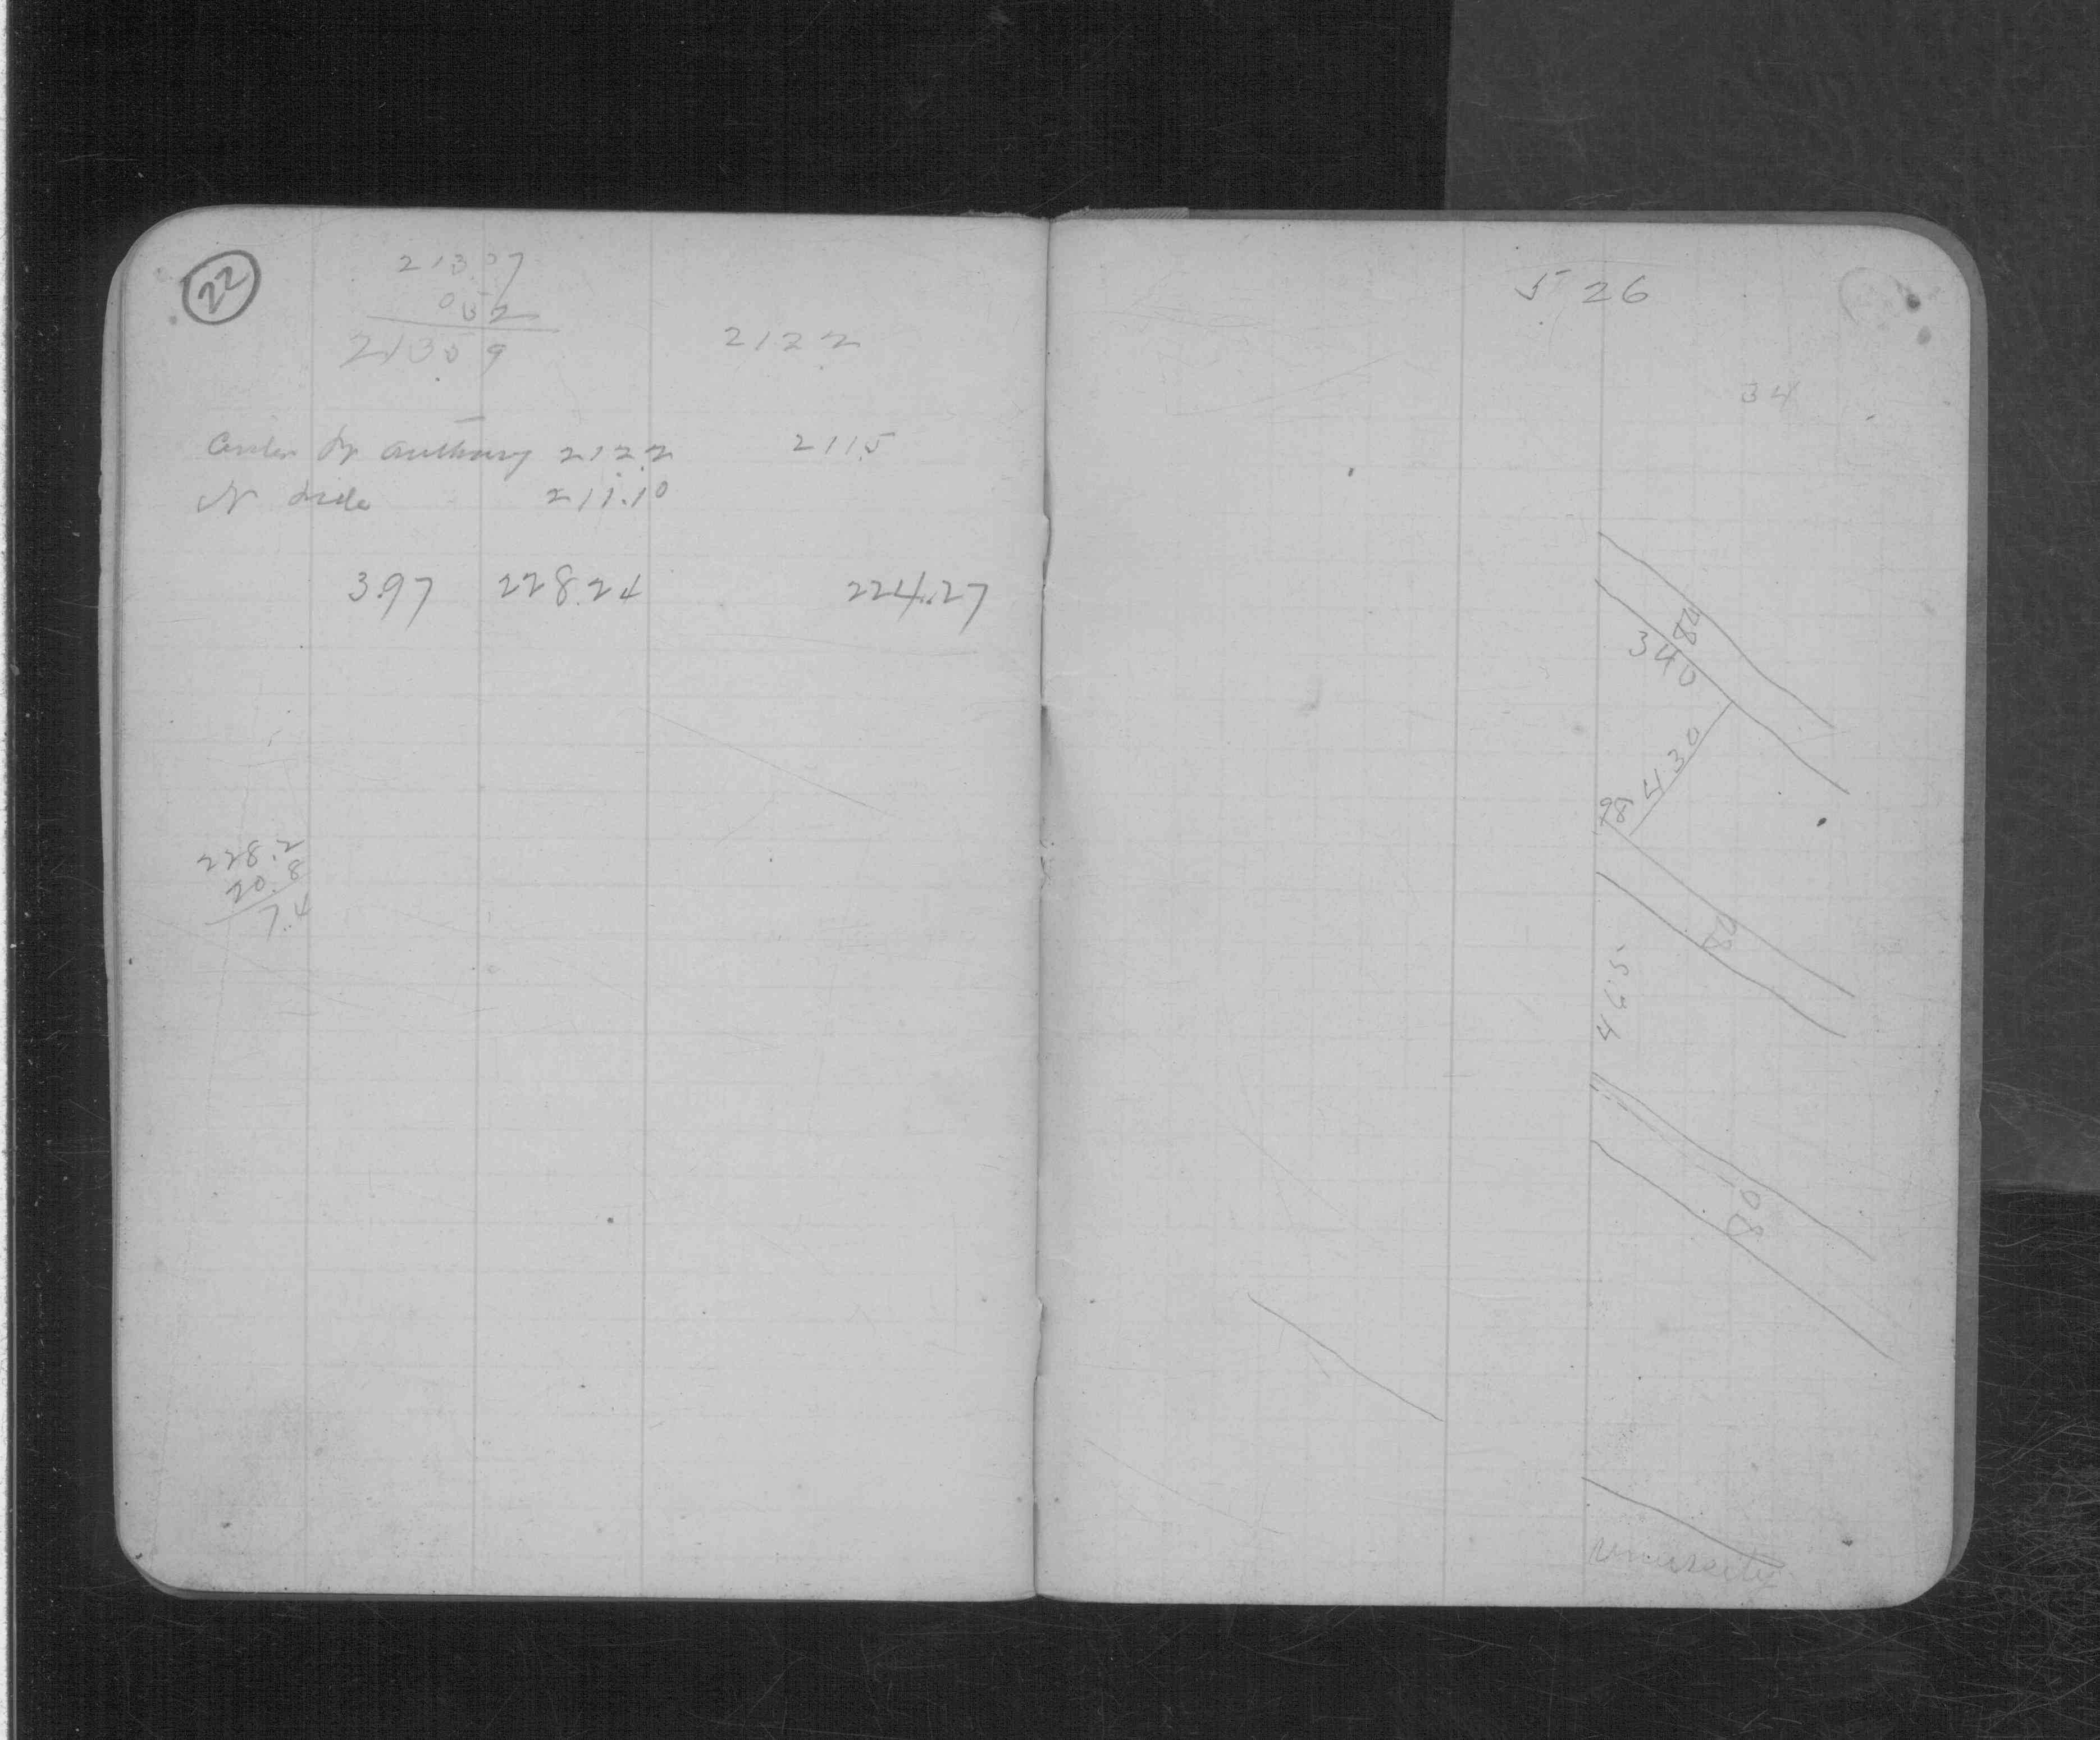 22
21307
052
21359
2122
Center of Anthony 2122 2115
N side 211.10
3.97 228.24 224.27
228.2
20.8
7.4
5 26
34
82
340
430
98
82
465
80
University